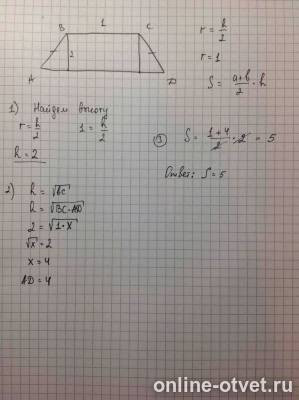 1
B C
2
A D
r = h/2
r = 1
S = a+b/2 · h
1) Найдем высоту
r = h/2 1 = h/2
h = 2
2) h = √bc
h = √BC·AD
2 = √1·x
√x = 2
x = 4
AD = 4
3) S = 1+4/2 · 2 = 5
Ответ: S = 5
online-otvet.ru